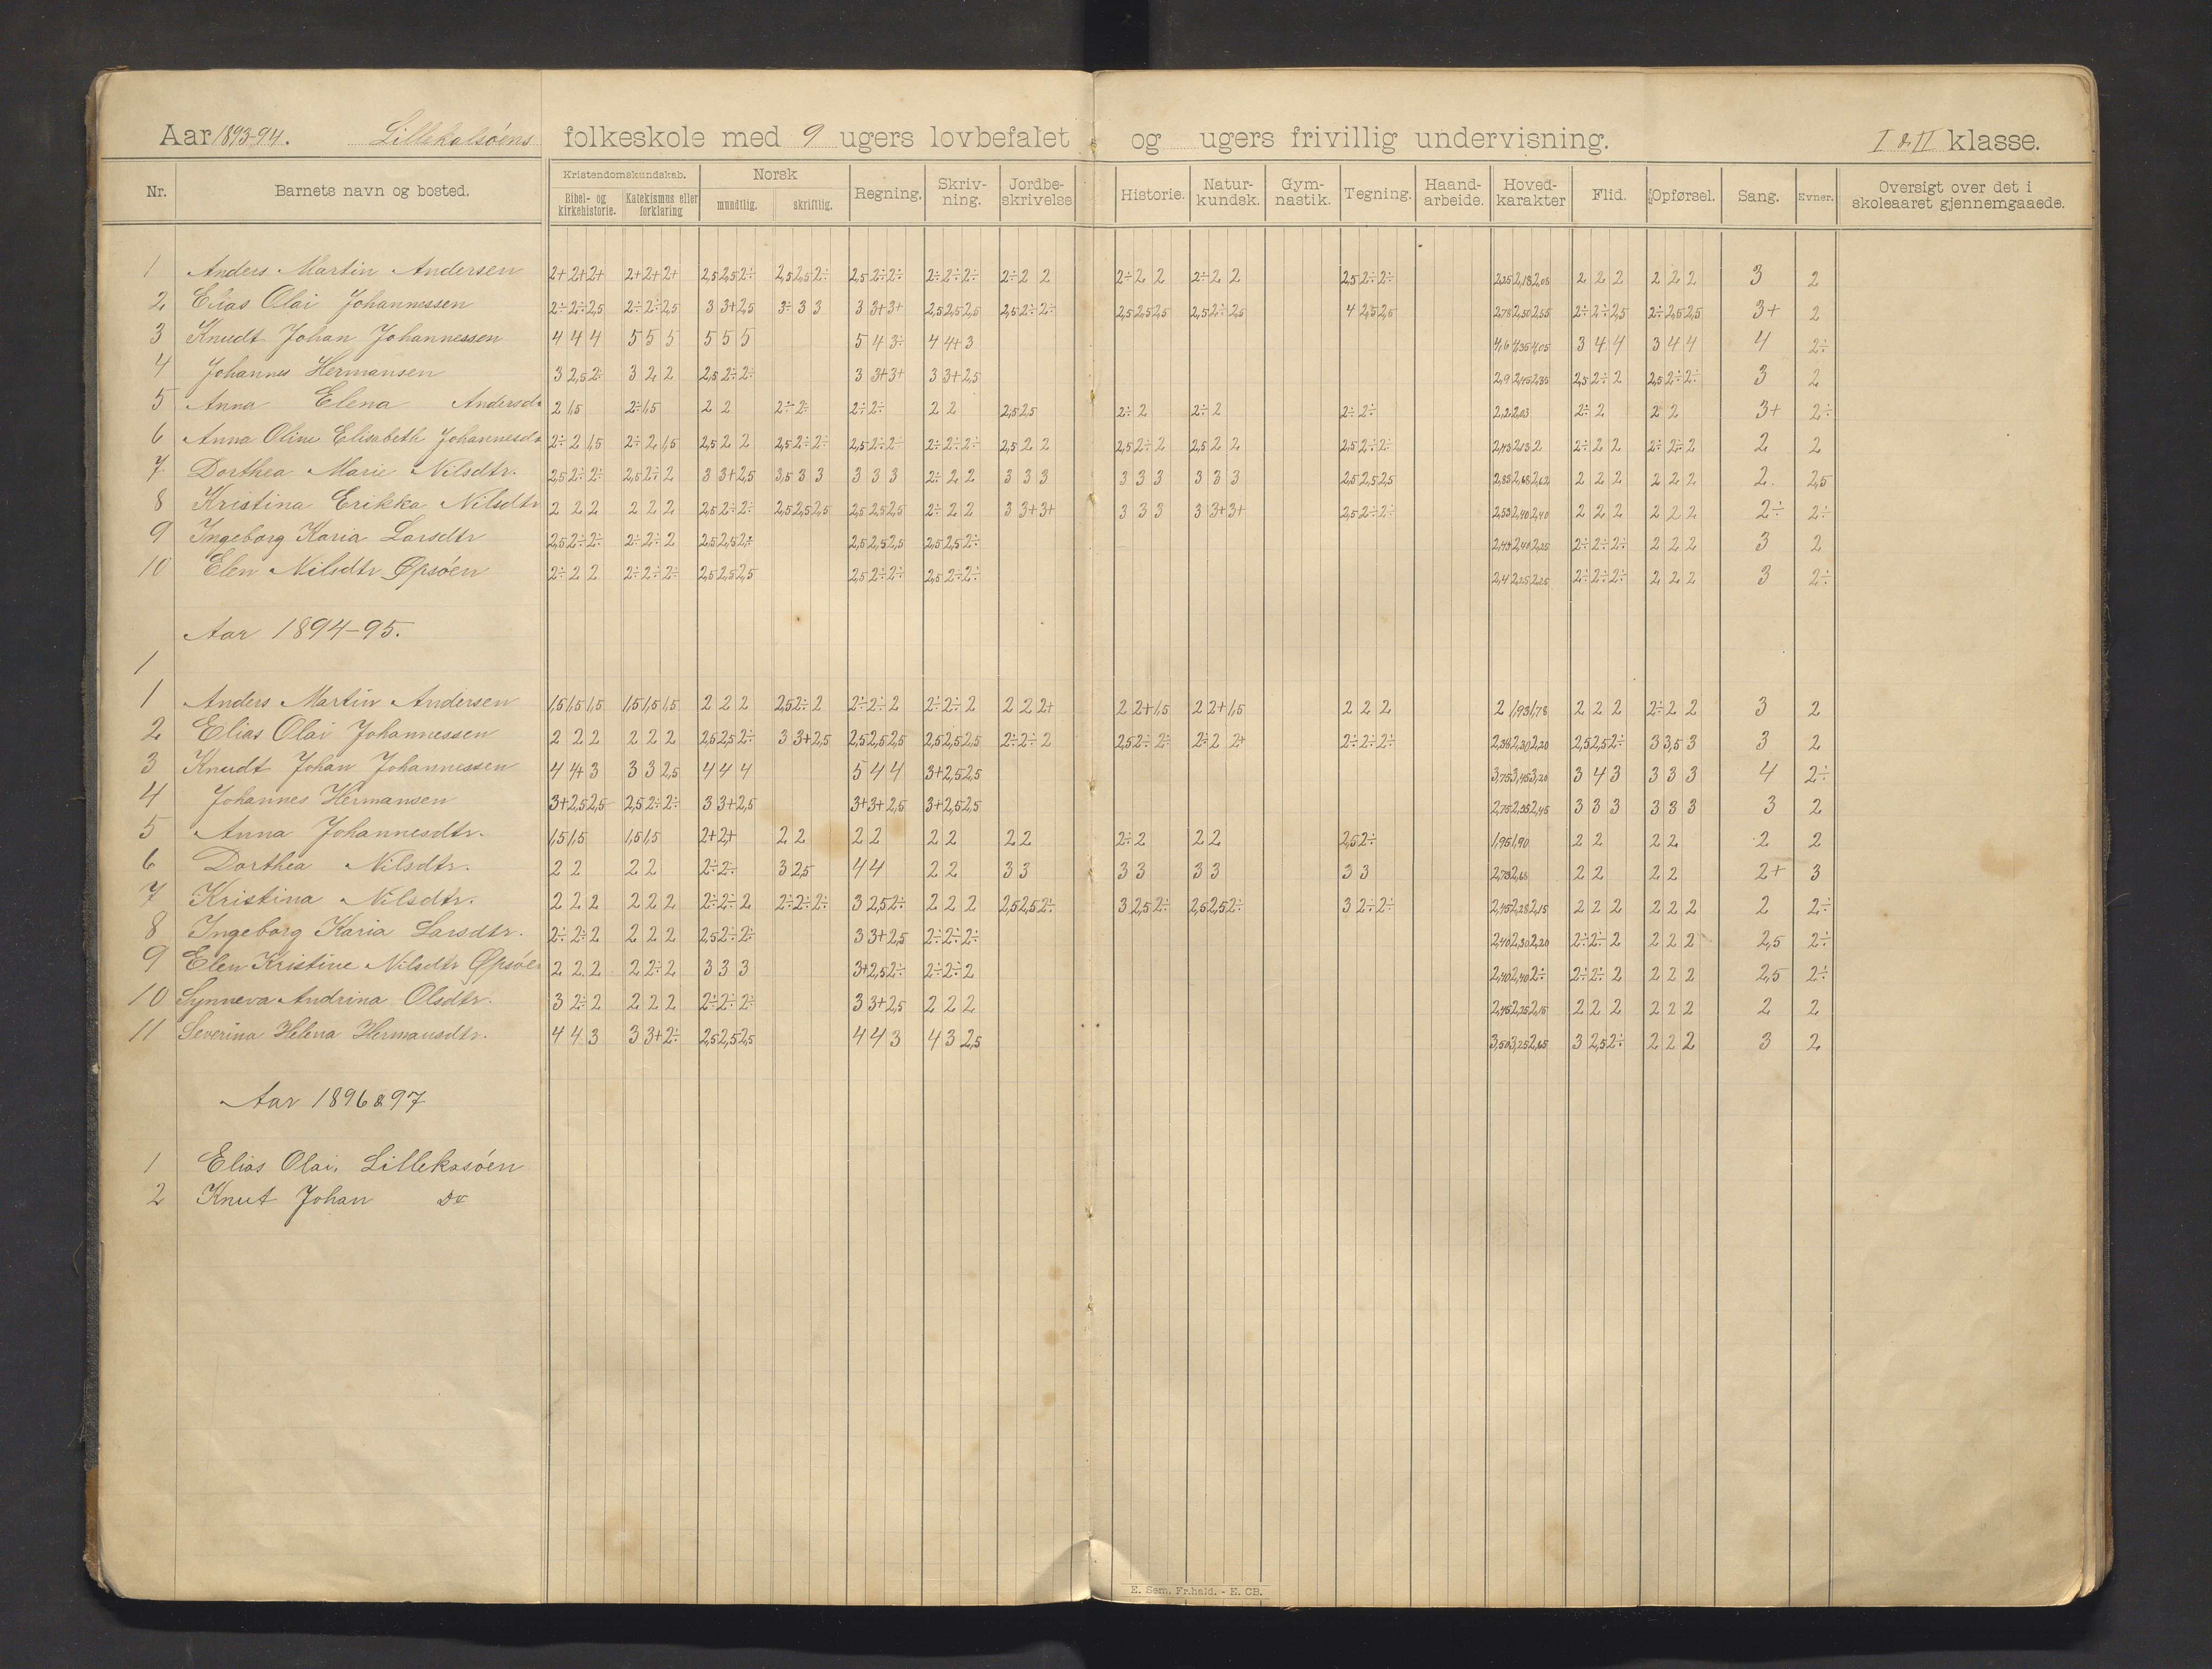 Aar 1893-94. Lillekalsöens folkeskole med 9 ugers lovbefalet og ugers frivillig undervisning. I & II klasse.
Nr. Barnets navn og bosted. Kristendomskundskab. Bibel- og kirkehistorie. Katekismus eller forklaring Norsk mundtlig. skriftlig. Regning. Skriv-ning. Jordbe-skrivelse Historie. Natur-kundsk. Gym-nastik. Tegning. Haand-arbeide. Hoved-karakter Flid. Opførsel. Sang. Evner. Oversigt over det i skoleaaret gjennemgaaede.
1 Anders Martin Andersen 2+ 2+ 2+ 2+ 2+ 2+ 2,5 2,5 2÷ 2,5 2,5 2÷ 2,5 2÷ 2÷ 2÷ 2÷ 2÷ 2÷ 2 2 2÷ 2 2 2÷ 2 2 2,5 2÷ 2÷ 2,25 2,18 2,05 2 2 2 2 2 2 3 2
2 Elias Olai Johannessen 2÷ 2÷ 2,5 2÷ 2÷ 2,5 3 3+ 2,5 3÷ 3 3 3 3+ 3+ 2,5 2,5 2,5 2,5 2÷ 2÷ 2,5 2,5 2,5 2,5 2÷ 2,5 4 2,5 2,5 2,78 2,50 2,55 2÷ 2÷ 2,5 2÷ 2,5 2,5 3+ 2
3 Knudt Johan Johannessen 4 4 4 5 5 5 5 5 5 5 4 3÷ 4 4+ 3 4,6 4,35 4,05 3 4 4 3 4 4 4 2÷
4 Johannes Hermansen 3 2,5 2÷ 3 2 2 2,5 2÷ 2÷ 3 3+ 3+ 3 3+ 2,5 2,9 2,45 2,35 2,5 2÷ 2 2,5 2÷ 2÷ 3 2
5 Anna Elena Andersdt 2 1,5 2÷ 1,5 2 2 2÷ 2÷ 2÷ 2÷ 2 2 2,5 2,5 2÷ 2 2÷ 2 2÷ 2÷ 2,2 2,03 2÷ 2 2 2 3+ 2÷
6 Anna Oline Elisabeth Johannesdt 2÷ 2 1,5 2÷ 2 1,5 2,5 2 2 2,5 2÷ 2÷ 2,5 2÷ 2÷ 2÷ 2÷ 2÷ 2,5 2 2 2,5 2÷ 2 2,5 2 2 2,5 2÷ 2÷ 2,43 2,13 2 2÷ 2 2 2÷ 2÷ 2 2 2
7 Dorthea Marie Nilsdtr. 2,5 2÷ 2÷ 2,5 2÷ 2 3 3+ 2,5 3,5 3 3 3 3 3 2÷ 2 2 3 3 3 3 3 3 3 3 3 2,5 2,5 2,5 2,85 2,68 2,62 2 2 2 2 2 2 2. 2,5
8 Kristina Erikka Nilsdtr 2 2 2 2 2 2 2,5 2÷ 2÷ 2,5 2,5 2,5 2,5 2,5 2,5 2÷ 2 2 3 3+ 3+ 3 3 3 3 3+ 3+ 2,5 2÷ 2÷ 2,53 2,40 2,40 2 2 2 2 2 2 2÷ 2÷
9 Ingeborg Karia Larsdtr 2,5 2÷ 2÷ 2÷ 2÷ 2 2,5 2,5 2÷ 2,5 2,5 2,5 2,5 2,5 2÷ 2,40 2,25 2÷ 2÷ 2÷ 2 2 2 3 2
10 Elen Nilsdtr Øpsöen 2÷ 2 2 2÷ 2÷ 2÷ 2,5 2,5 2,5 2,5 2÷ 2÷ 2,5 2÷ 2÷ 2,4 2,25 2,25 2÷ 2÷ 2÷ 2 2 2 3 2÷
Aar 1894-95.
1
1 Anders Martin Andersen 1,5 1,5 1,5 1,5 1,5 1,5 2 2 2 2,5 2÷ 2 2÷ 2÷ 2 2÷ 2÷ 2 2 2 2+ 2 2+ 1,5 2 2+ 1,5 2 2 2 2 1,93 1,78 2 2 2 2÷ 2 2 3 2
2 Elias Olai Johannessen 2 2 2 2 2 2 2,5 2,5 2÷ 3 3+ 2,5 2,5 2,5 2,5 2,5 2,5 2,5 2÷ 2÷ 2 2,5 2÷ 2÷ 2÷ 2 2+ 2÷ 2÷ 2÷ 2,38 2,30 2,20 2,5 2,5 2÷ 3 3,5 3 3 2
3 Knudt Johan Johannessen 4 4+ 3 3 3 2,5 4 4 4 5 4 4 3+ 2,5 2,5 3,75 3,45 3,20 3 4 3 3 3 3 4 2÷
4 Johannes Hermansen 3+ 2,5 2,5 2,5 2÷ 2÷ 3 3+ 2,5 3+ 3+ 2,5 3+ 2,5 2,5 2,75 2,55 2,45 3 3 3 3 3 3 3 2
5 Anna Johannesdtr. 1,5 1,5 1,5 1,5 2+ 2+ 2 2 2 2 2 2 2 2 2÷ 2 2 2 2,5 2÷ 1,95 1,90 2 2 2 2 2 2
6 Dorthea Nilsdtr. 2 2 2 2 2÷ 2÷ 3 2,5 4 4 2 2 3 3 3 3 3 3 3 3 2,73 2,65 2 2 2 2 2+ 3
7 Kristina Nilsdtr. 2 2 2 2 2 2 2÷ 2÷ 2 2÷ 2÷ 2÷ 3 2,5 2÷ 2 2 2 2,5 2,5 2÷ 3 2,5 2÷ 2,5 2,5 2÷ 3 2÷ 2÷ 2,45 2,28 2,15 2 2 2 2 2 2 2 2÷
8 Ingeborg Karia Larsdtr. 2÷ 2÷ 2 2 2 2 2,5 2÷ 2÷ 3 3+ 2,5 2÷ 2÷ 2÷ 2,40 2,30 2,20 2÷ 2÷ 2 2 2 2 2,5 2÷
9 Elen Kristine Nilsdtr Øpsöen 2 2 2 2 2÷ 2 3 3 3 3+ 2,5 2÷ 2÷ 2÷ 2 2,40 2,40 2÷ 2÷ 2÷ 2 2 2 2 2,5 2÷
10 Synneva Andrina Olsdtr. 3 2÷ 2 2 2 2 2÷ 2÷ 2÷ 3 3+ 2,5 2 2 2 2,45 2,25 2,15 2 2 2 2 2 2 2 2
11 Severina Helena Hermansdtr. 4 4 3 3 3+ 2÷ 2,5 2,5 2,5 4 4 3 4 3 2,5 3,50 3,25 2,65 3 2,5 2÷ 2 2 2 3 2
Aar 1896 & 97
1 Elias Olai, Lillekasöen
2 Knut Johan Do
E. Sem, Fr.hald. - E. CB.